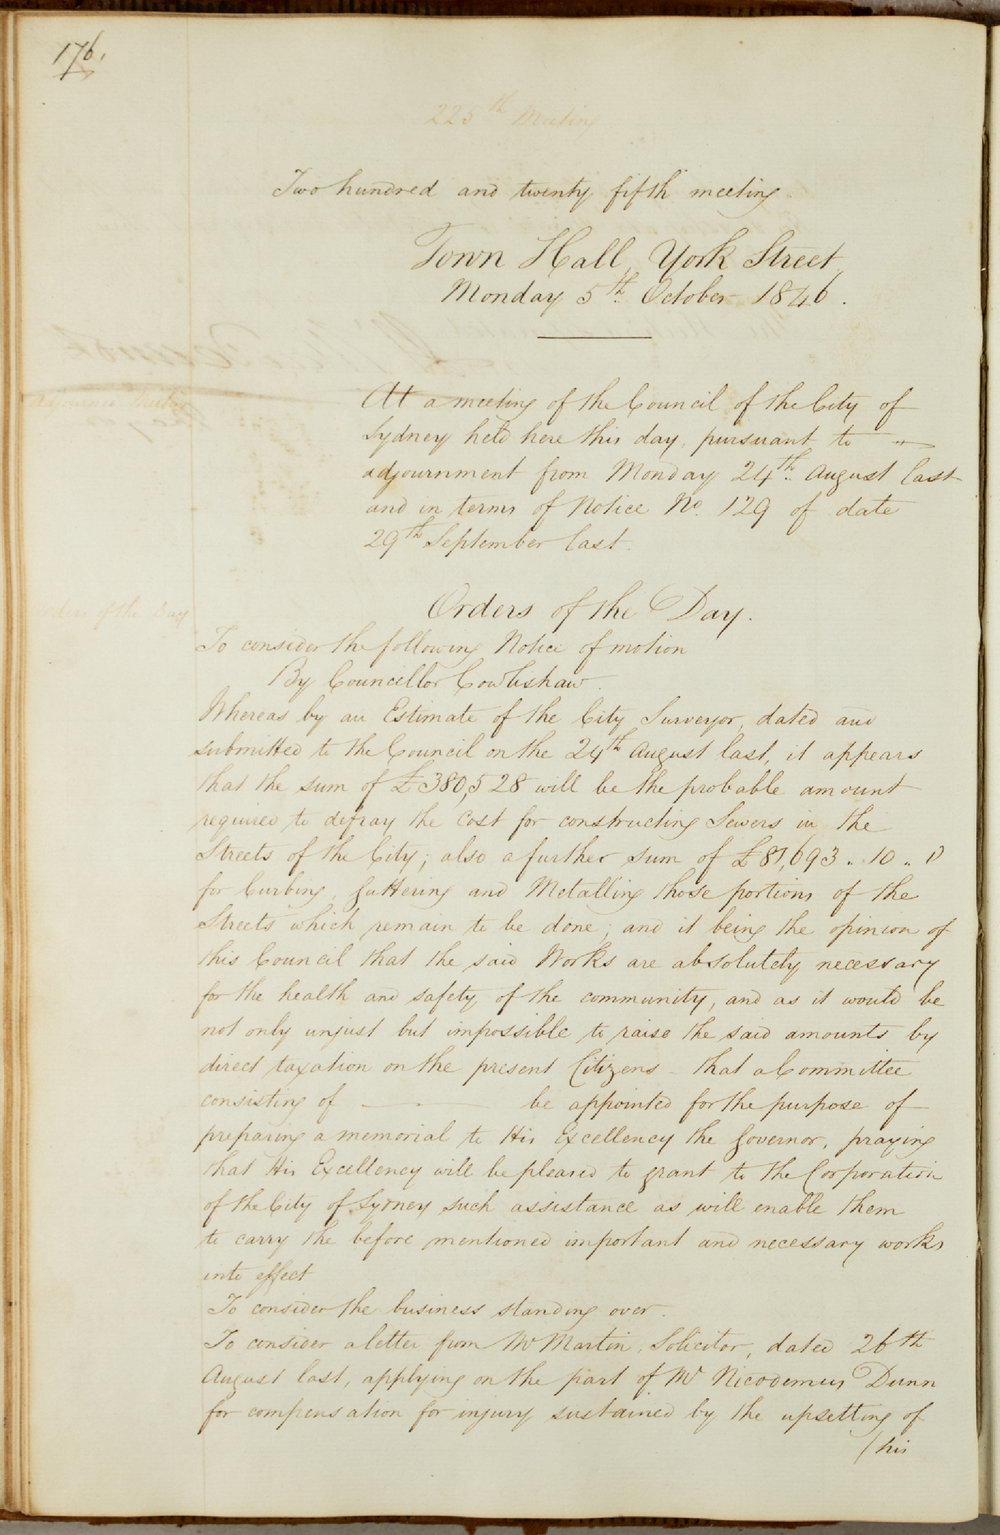 176.
225th Meeting
Two hundred and twenty fifth meeting
Town Hall, York Street,
Monday 5th October 1846.
At a meeting of the Council of the City of
Sydney held here this day, pursuant to
adjournment from Monday 24th August last
and in terms of Notice No. 129 of date
29th September last.
Orders of the Day
Orders of the Day.
To consider the following Notice of motion
By Councillor Cowlishaw.
Whereas by an Estimate of the City Surveyor, dated and
submitted to the Council on the 24th August last, it appears
that the sum of £380,528 will be the probable amount
required to defray the Cost for constructing Sewers in the
Streets of the City; also a further sum of £81,693 .. 10 ..
for Curbing, Guttering and Metalling those portions of the
Streets which remain to be done; and it being the opinion of
this Council that the said Works are absolutely necessary
for the health and safety of the community, and as it would be
not only unjust but impossible to raise the said amounts by
direct taxation on the present Citizens - that a Committee
consisting of — be appointed for the purpose of
preparing a memorial to His Excellency the Governor, praying
that His Excellency will be pleased to grant to the Corporation
of the City of Sydney such assistance as will enable them
to carry the before mentioned important and necessary works
into effect
To consider the business standing over.
To consider a letter from Mr Martin, Solicitor, dated 26th
August last, applying on the part of Mr Nicodemus Dunn
for compensation for injury sustained by the upsetting of
/his